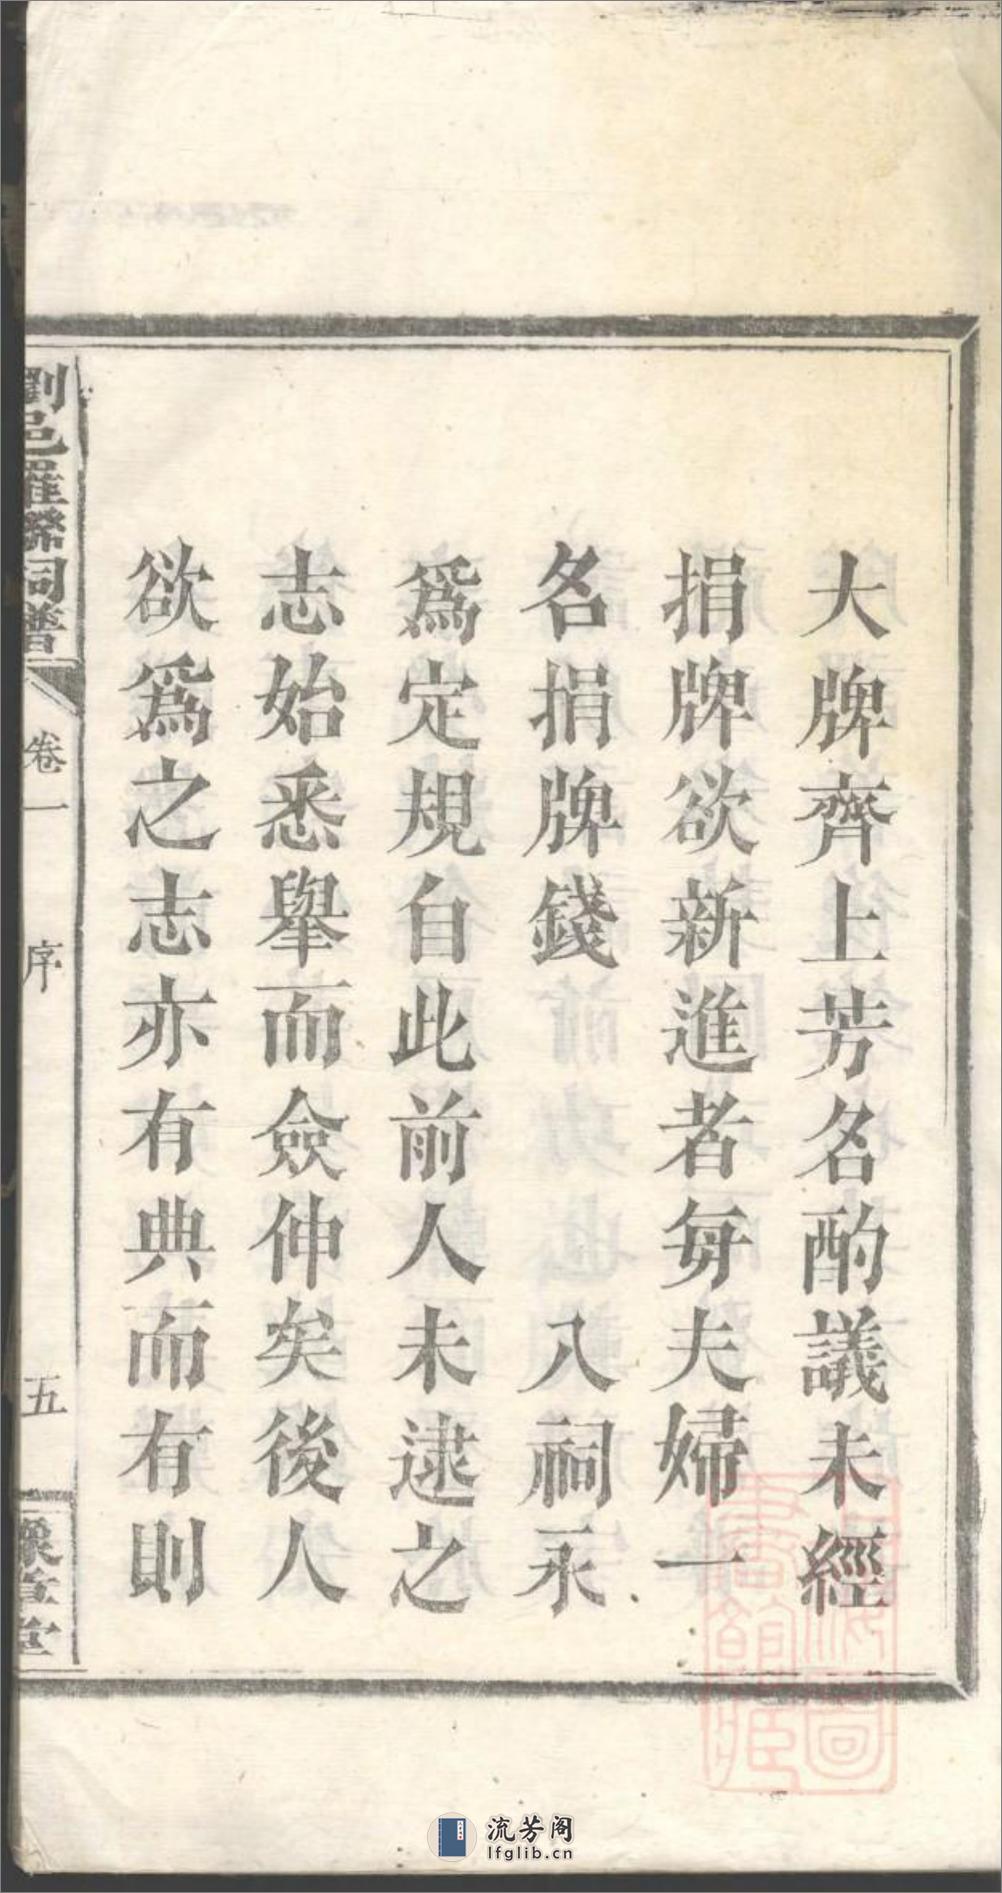 大牌齊上芳名酌議未經
捐牌欲新進者每夫婦一
名捐牌錢 入祠永
爲定規自此前人未逮之
志始悉舉而僉伸矣後人
欲爲之志亦有典而有則
劉邑羅氏祠譜
卷一
序
五
豫章堂
上海圖書館藏
流芳阁
lfglib.cn